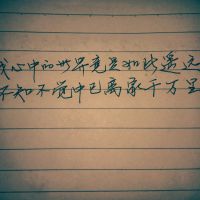 我心中的世界竟是如此遥远
不知不觉中已离家千万里